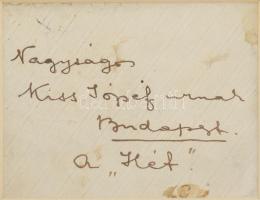 Nagyságos
Kiss József urnak
Budapest.
A „Hét”